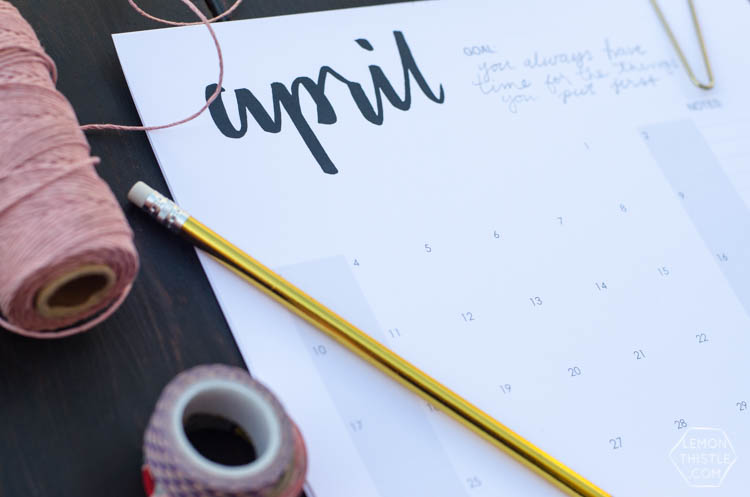 april
GOAL:
you always have
time for the things
you put first
NOTES
1 2
4 5 6 7 8 9
10 11 12 13 14 15 16
17 18 19 20 21 22
25 27 28 29
LEMON
THISTLE
.COM